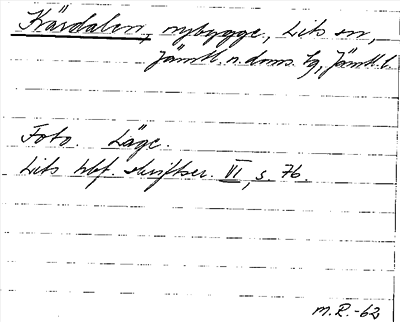 Kärdalen, nybygge, Lits sn,
Jämtl. n. doms. tg, Jämtl. l.
Foto. Läge.
Lits hbf. skriftser. VI, s. 76.
M.R.-62